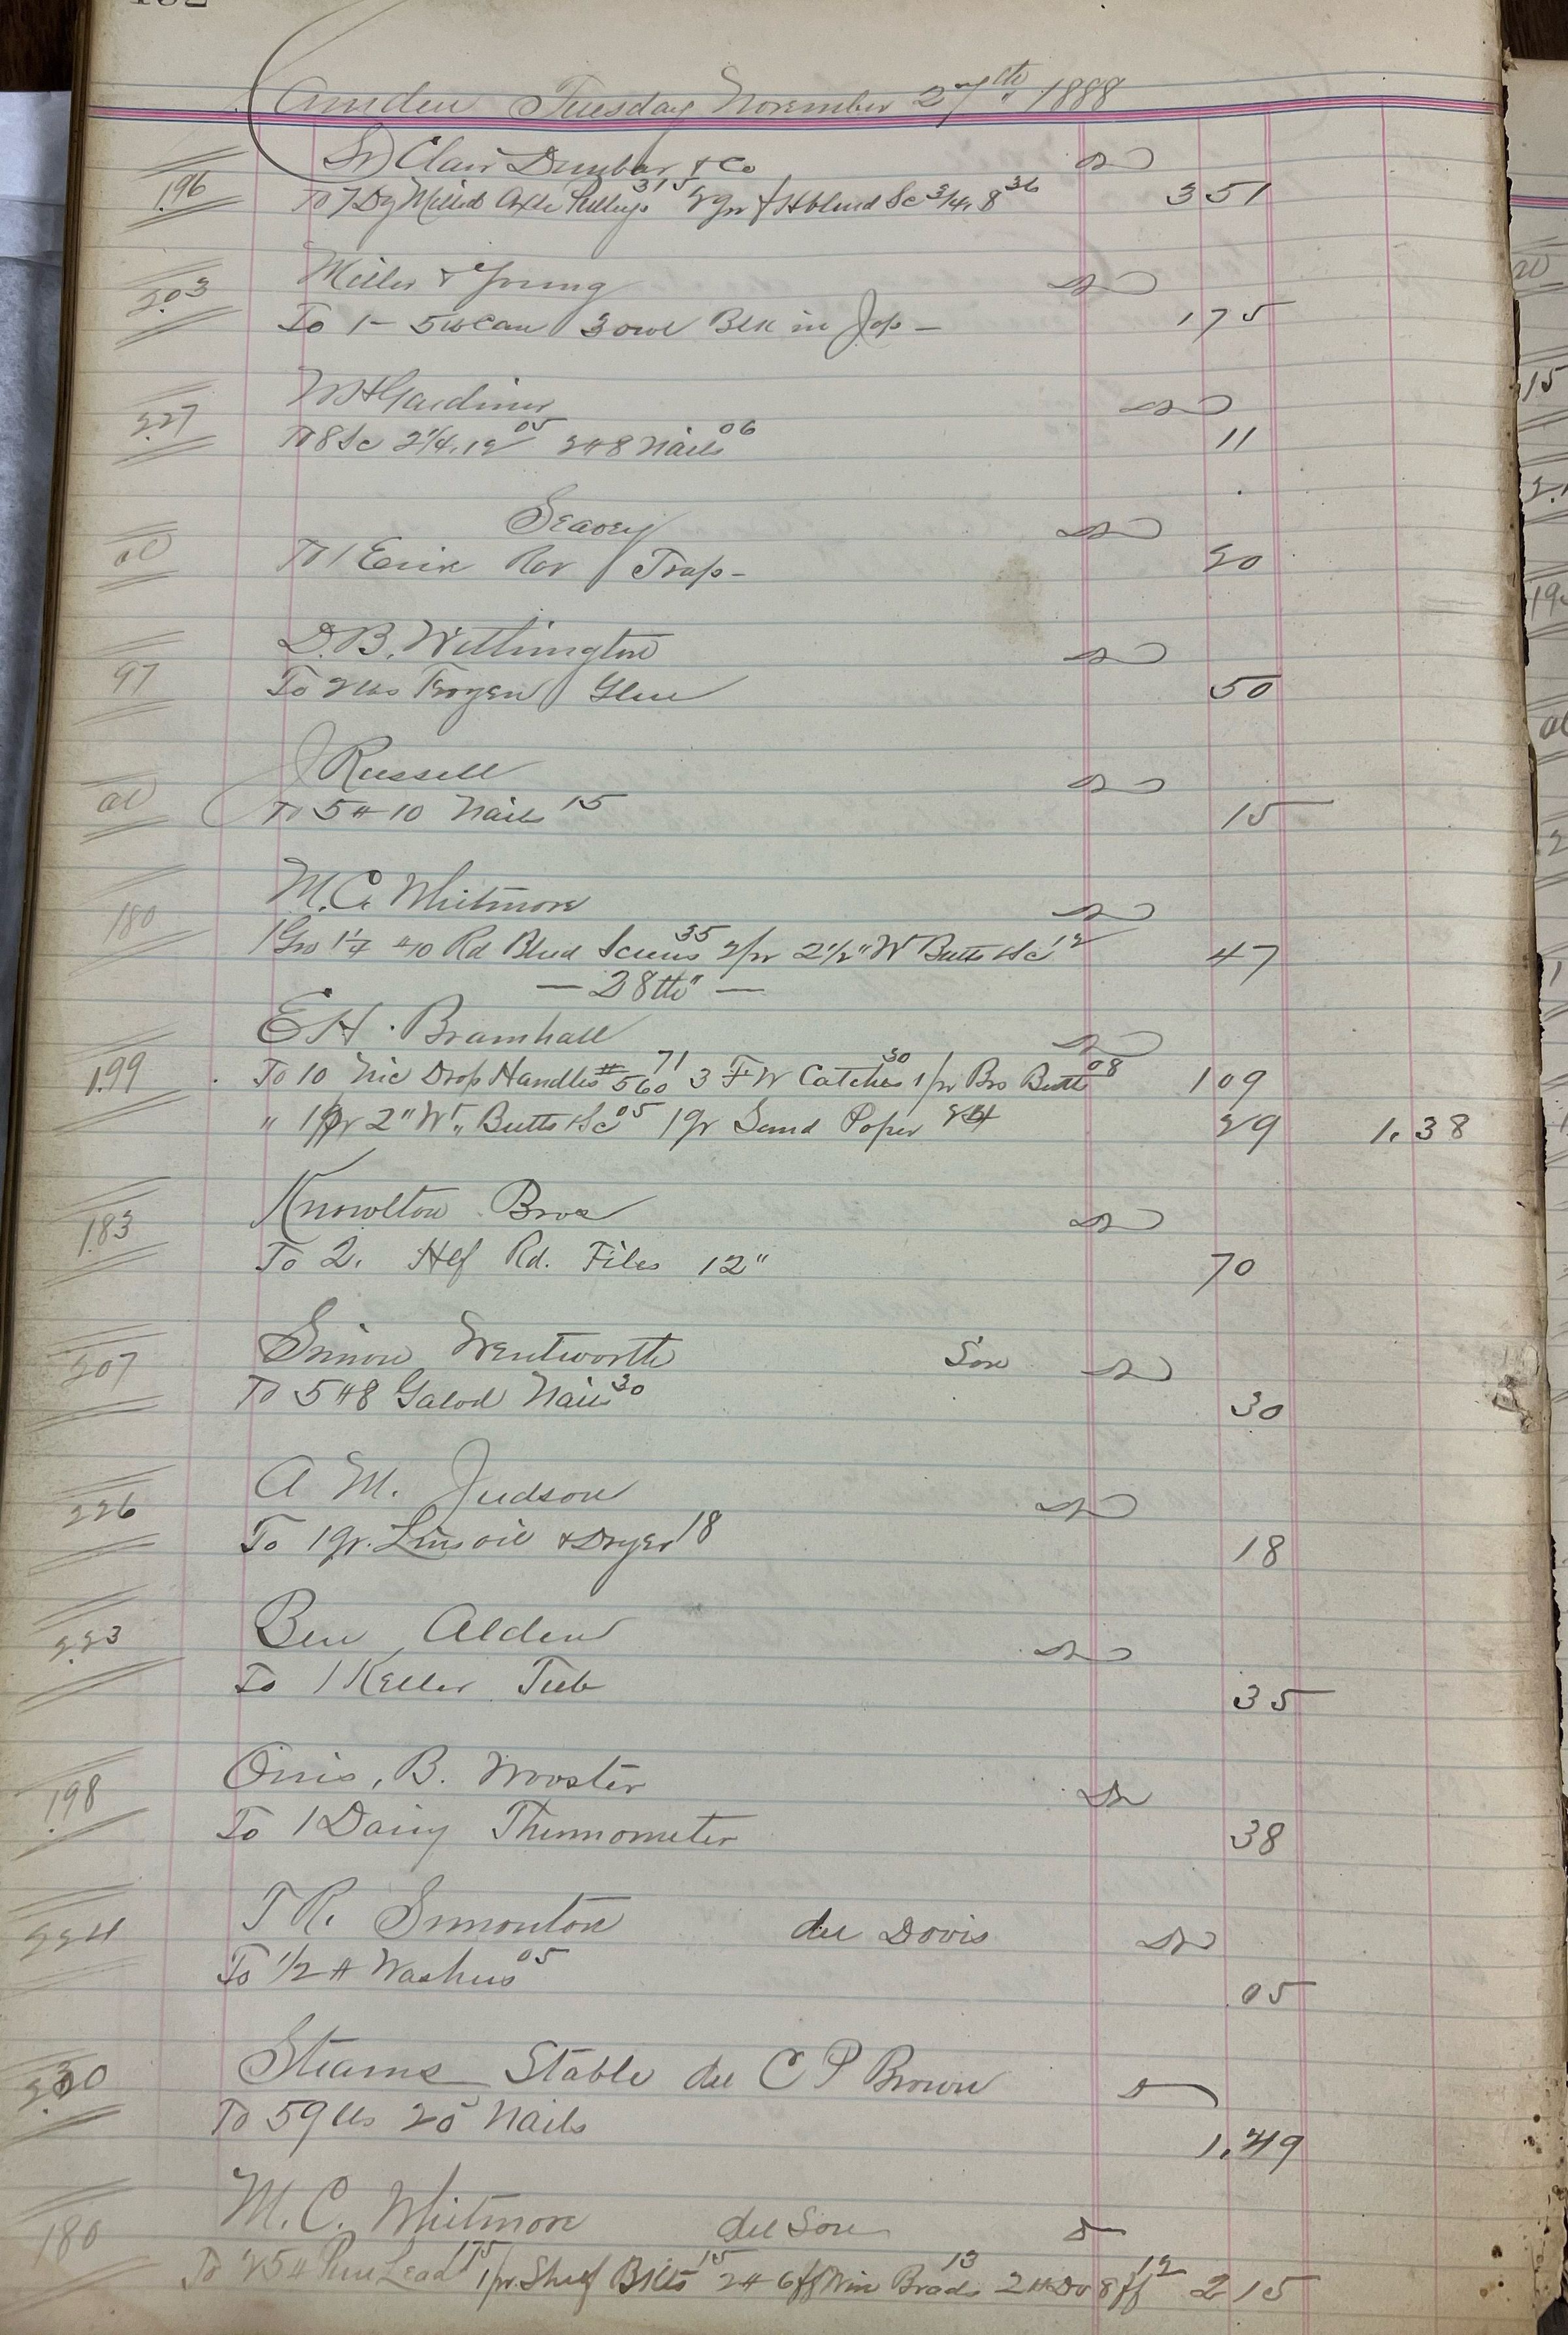 Camden Tuesday November 27th 1888
St Clair Dunbar & Co Dr
196 To 7 Dz Mitred Axle Pulleys 315 2 gr f H blued Sc 3/4, 8 36 3 51
Miller & Young Dr
203 To 1 - 5 lb can Blk in Jap - 1 75
W H Gardiner Dr
227 To 8 Sc 2 1/4, 12 05 2 # 8 Nails 06 11
Seavey Dr
To 1 Rat Trap - 20
D. B. Withington Dr
97 To 2 lbs Glue 50
J Russell Dr
To 5 # 10 Nails 15 15
M. C. Whitmore Dr
180 1 Gro 1 1/4 #10 Rd Blued Screws 35 2 pr 2 1/2" Wt Butts & Sc 12 47
— 28th" —
E H. Bramhall Dr
199 To 10 Nic Drop Handles # 560 71 3 F W Catches 30 1 pr Bro Butts 08 1 09
" 1 pr 2" Wt. Butts & Sc 05 1 qr Sand Paper 24 29 1.38
Knowlton Bros Dr
183 To 2. Hlf Rd. Files 12" 70
Simon Wentworth Son Dr
207 To 5 # 8 Galvd Nails 30 30
A M. Judson Dr
226 To 1 qr. Lins oil & Dryer 18 18
Ben Alden Dr
223 To 1 Keller Tub 35
Orris, B. Wooster Dr
198 To 1 Dairy Thermometer 38
T R. Simonton del Davis Dr
224 To 1/2 # Washers 05 05
Stearns Stable del C P Brown Dr
230 To 59 lbs 20 Nails 1.49
M. C. Whitmore del Son Dr
180 To 25 # Pure Lead 175 1 pr. Shelf Bkts 15 2 # 6 ff Win Brads 13 2 # Do 8 ff 12 2 15